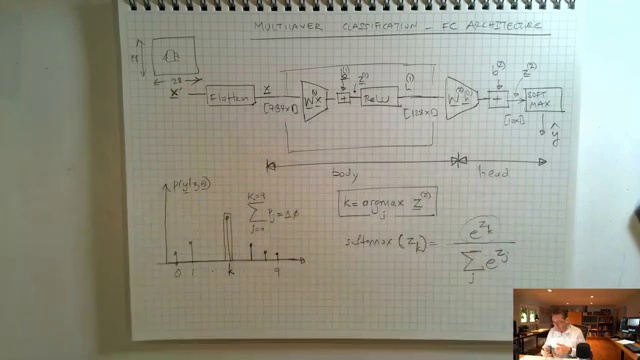 MULTILAYER CLASSIFICATION - FC ARCHITECTURE
28
28
x'
Flatten
x
[784x1]
W⁽¹⁾x
b⁽¹⁾
+
z⁽¹⁾
ReLU
h⁽¹⁾
[128x1]
W⁽²⁾h⁽¹⁾
b⁽²⁾
+
z⁽²⁾
[10x1]
SOFT
MAX
ŷ
body
head
P(y|x,θ)
Σ Pj = 1.0
k=9
j=0
0 1 . k 9
k = argmax z⁽²⁾
j
softmax (zk) = e^zk / Σj e^zj